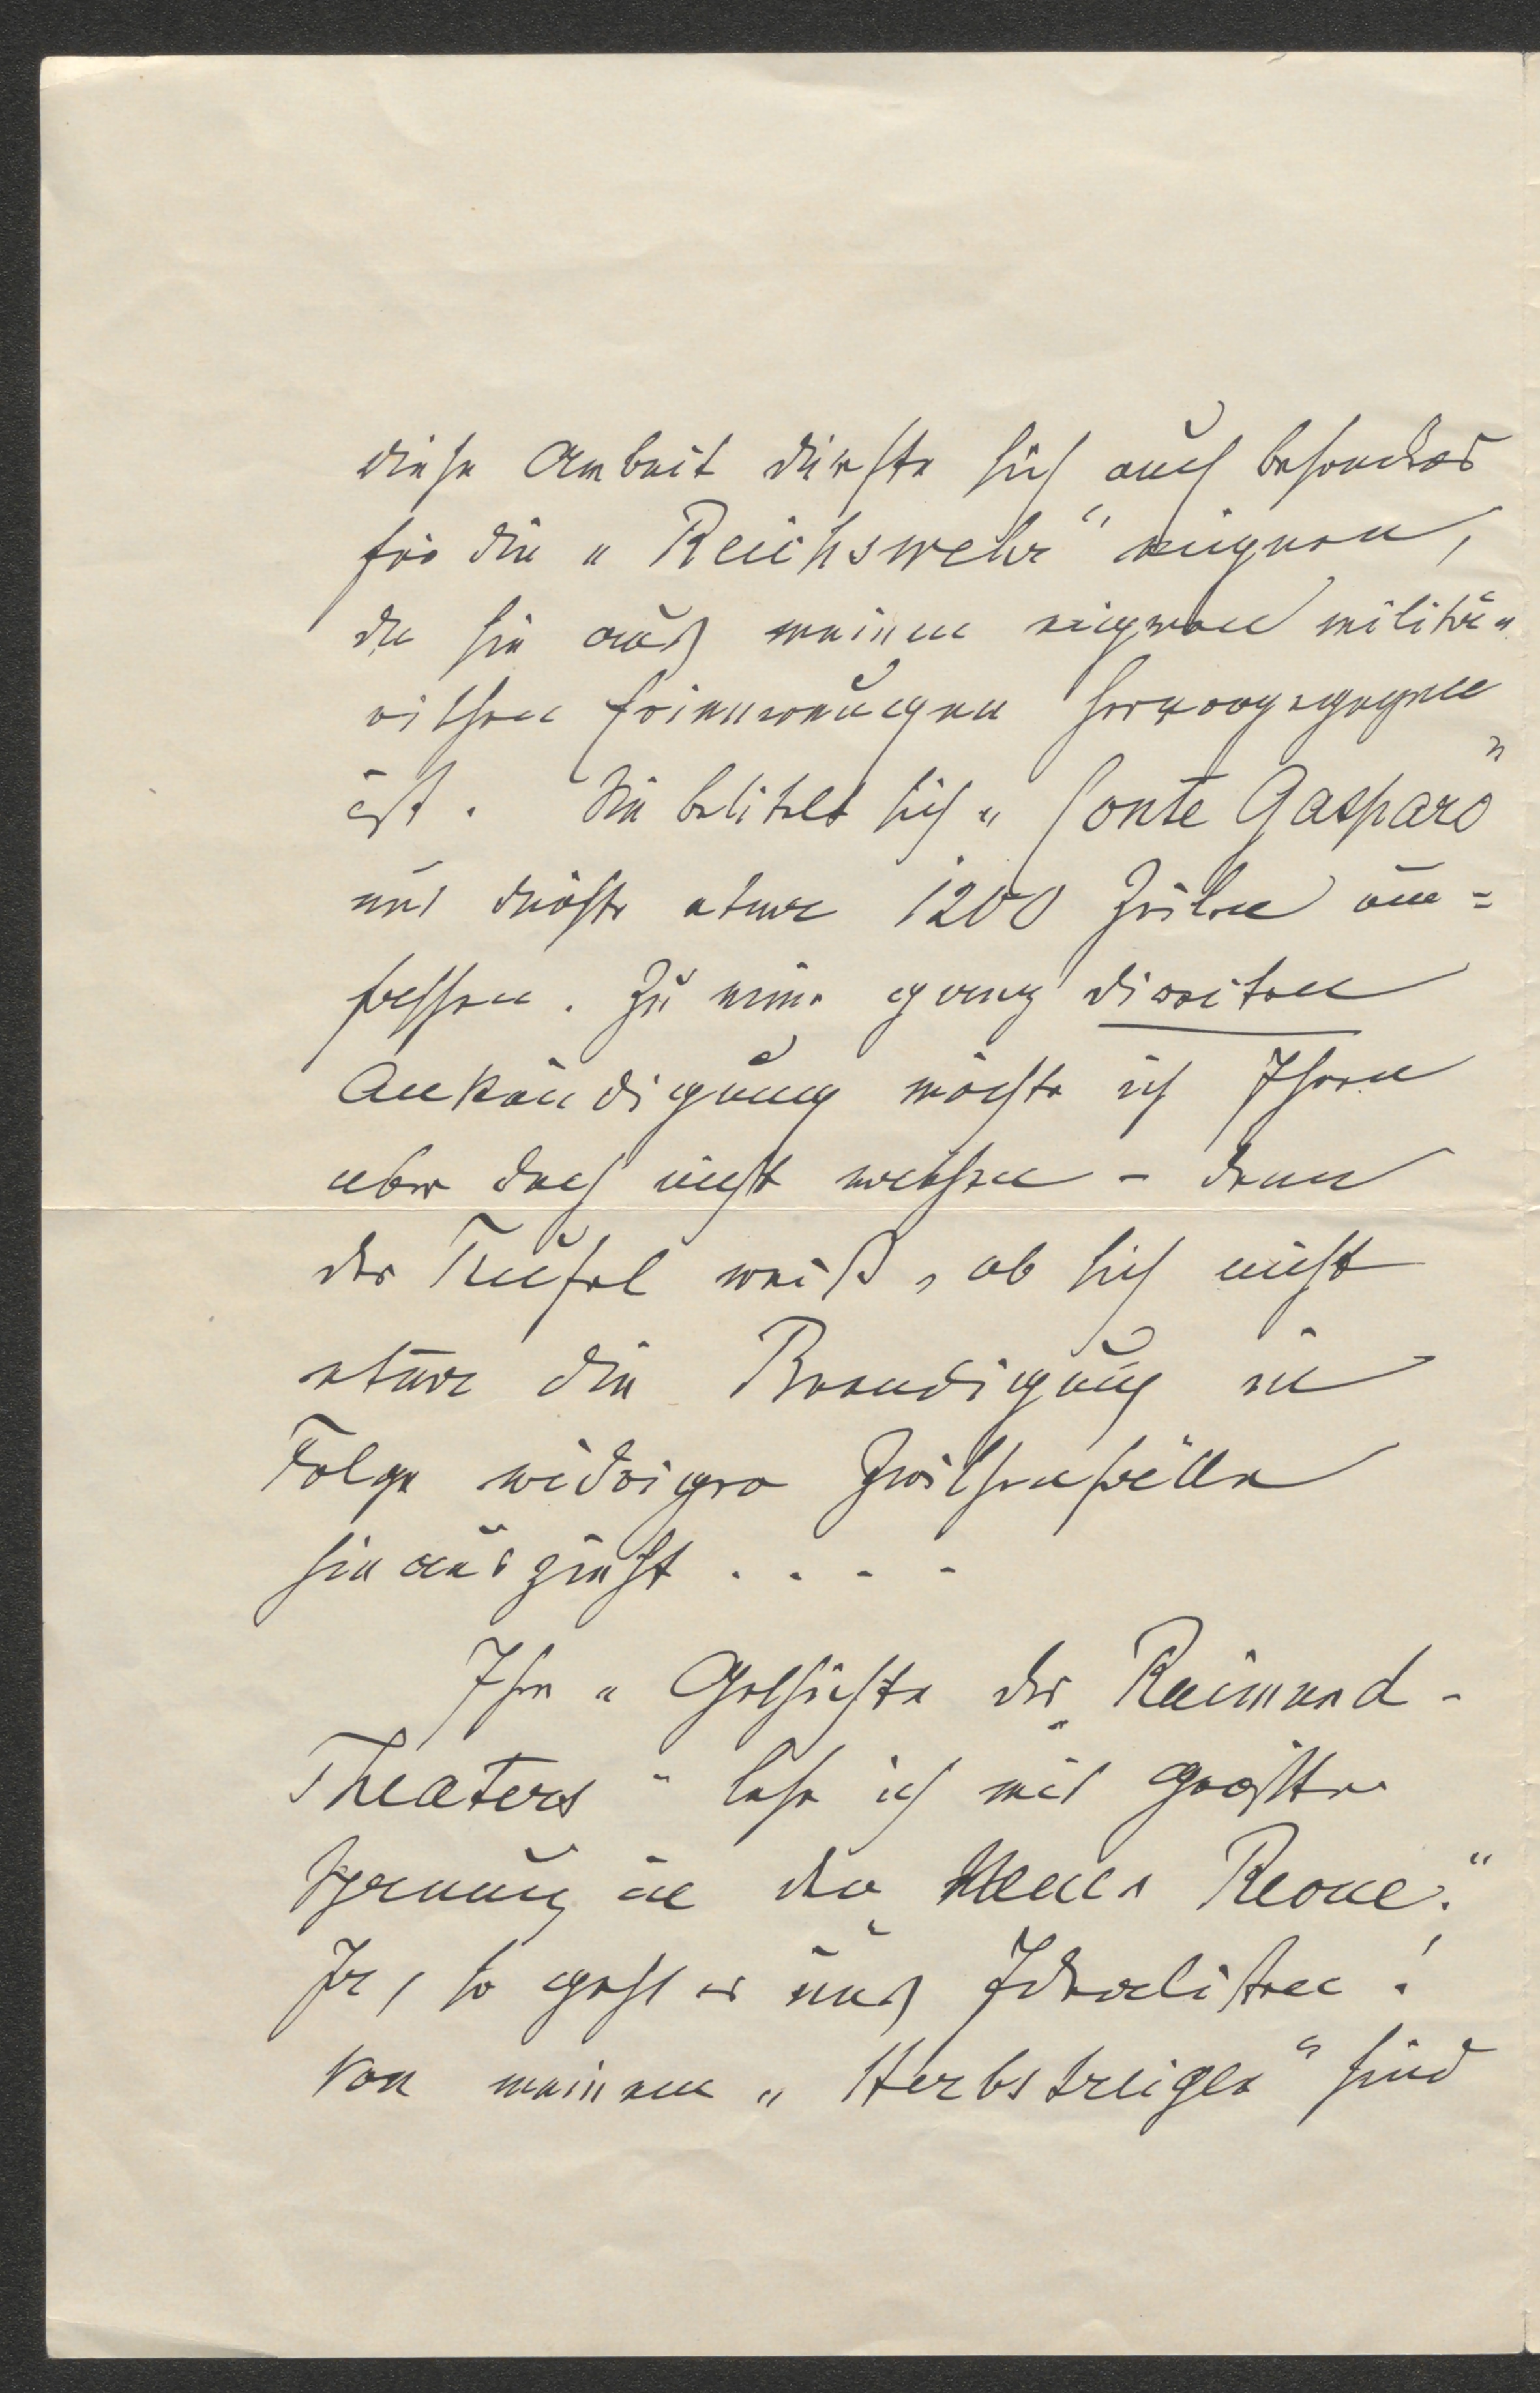 diese Arbeit dürfte sich auch besonders
für die „Reichswehr“ eignen,
da sie aus meinen eigenen militä-
rischen Erinnerungen hervorgegangen
ist. Sie betitelt sich „Conte Gasparo“
und dürfte etwa 1200 Zeilen um=
fassen. Zu einer ganz directen
Ankündigung möchte ich Ihnen
aber doch nicht rathen – denn
der Teufel weiß, ob sich nicht
etwa die Beendigung in
Folge widriger Zwischenfälle
hinauszieht . . . .
Ihre „Geschichte des Raimund-
Theaters“ lese ich mit größter
Spannung in der „Neuen Revue.“
Ja, so geht es uns Idealisten!
Von meinem „Herbstreigen“ sind